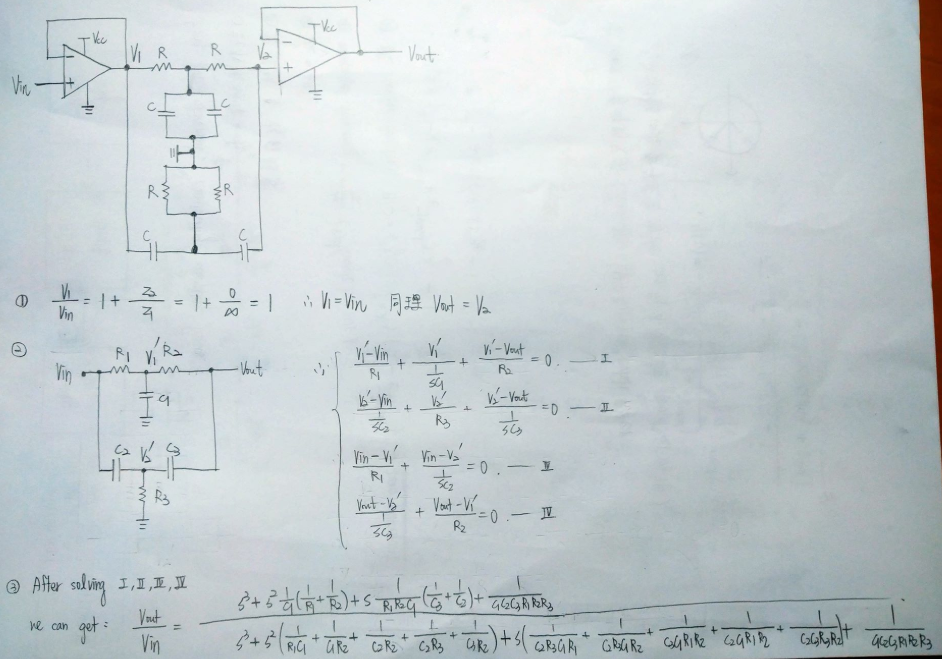 Vcc
Vcc
Vin V1 R R V2 Vout
C C
R R
C C
① V1/Vin = 1 + Z2/Z1 = 1 + 0/∞ = 1 ∴ V1 = Vin 同理 Vout = V2
②
Vin R1 V1' R2 Vout
C1
C2 V2' C3
R3
∴ (V1'-Vin)/R1 + V1'/(1/SC1) + (V1'-Vout)/R2 = 0. — I
(V2'-Vin)/(1/SC2) + V2'/R3 + (V2'-Vout)/(1/SC3) = 0 — II
(Vin-V1')/R1 + (Vin-V2')/(1/SC2) = 0. — III
(Vout-V2')/(1/SC3) + (Vout-V1')/R2 = 0. — IV
③ After solving I, II, III, IV
we can get: Vout/Vin = (S³ + S² 1/C1 (1/R1 + 1/R2) + S 1/(R1R2C1) (1/C3 + 1/C2) + 1/(C1C2C3R1R2R3)) / (S³ + S² (1/(R1C1) + 1/(C1R2) + 1/(C2R2) + 1/(C2R3) + 1/(C3R2)) + S (1/(C2R3C1R1) + 1/(C2R3C1R2) + 1/(C3C1R1R2) + 1/(C2C1R1R2) + 1/(C2C3R3R2)) + 1/(C1C2C3R1R2R3))